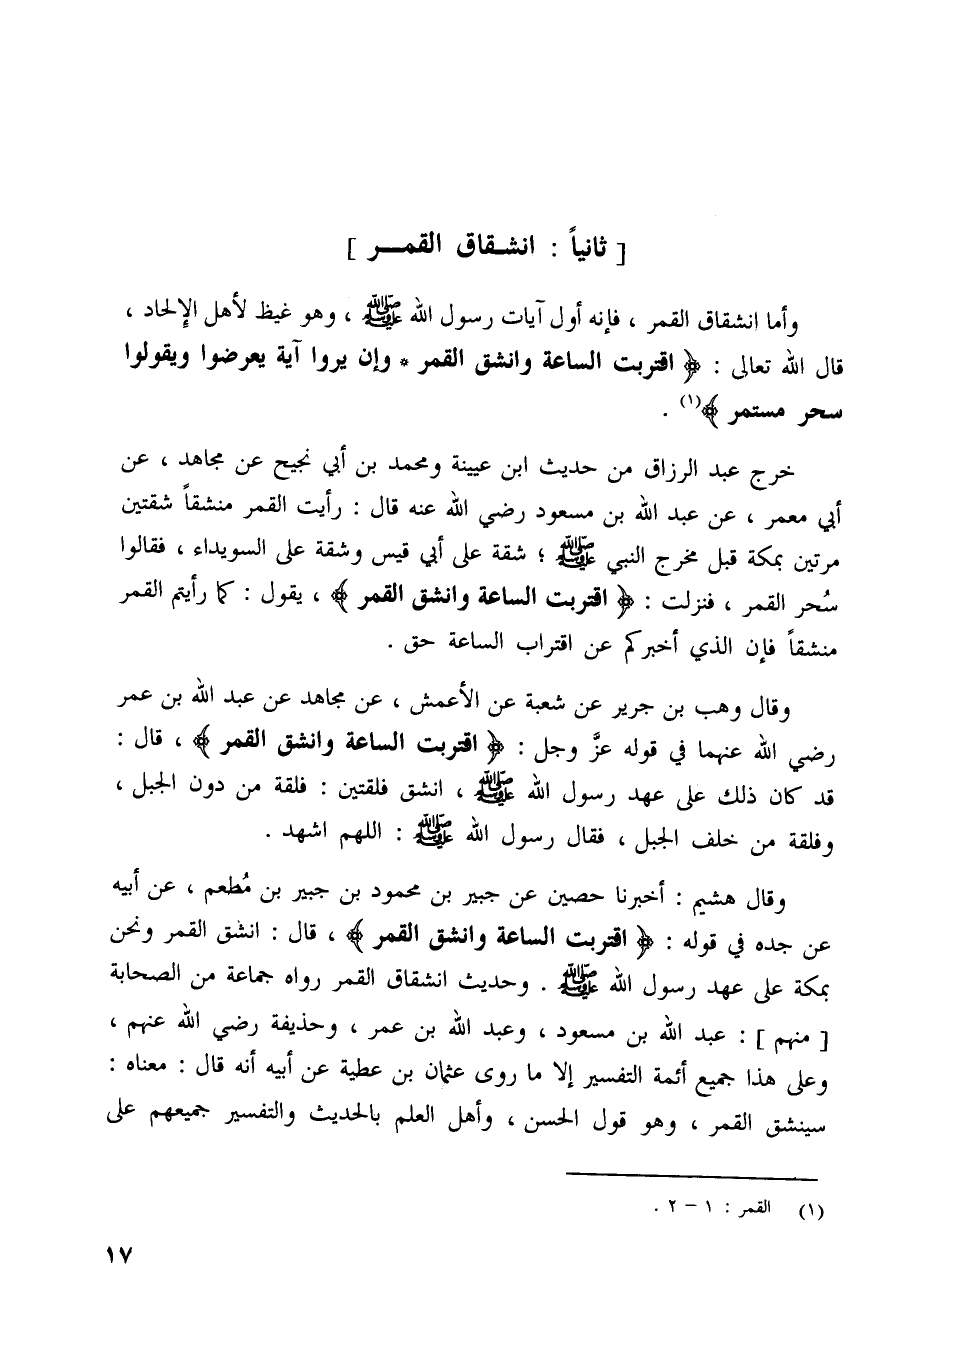 [ ثانياً : انشـقاق القمـــر ]
وأما انشقاق القمر ، فإنه أول آيات رسول الله ﷺ ، وهو غيظ لأهل الإلحاد ،
قال الله تعالى : ﴿ اقتربت الساعة وانشق القمر * وإن يروا آية يعرضوا ويقولوا
سحر مستمر ﴾(١) .
خرج عبد الرزاق من حديث ابن عيينة ومحمد بن أبي نجيح عن مجاهد ، عن
أبي معمر ، عن عبد الله بن مسعود رضي الله عنه قال : رأيت القمر منشقاً شقتين
مرتين بمكة قبل مخرج النبي ﷺ ؛ شقة على أبي قيس وشقة على السويداء ، فقالوا
سُحر القمر ، فنزلت : ﴿ اقتربت الساعة وانشق القمر ﴾ ، يقول : كما رأيتم القمر
منشقاً فإن الذي أخبركم عن اقتراب الساعة حق .
وقال وهب بن جرير عن شعبة عن الأعمش ، عن مجاهد عن عبد الله بن عمر
رضي الله عنهما في قوله عزَّ وجل : ﴿ اقتربت الساعة وانشق القمر ﴾ ، قال :
قد كان ذلك على عهد رسول الله ﷺ ، انشق فلقتين : فلقة من دون الجبل ،
وفلقة من خلف الجبل ، فقال رسول الله ﷺ : اللهم اشهد .
وقال هشيم : أخبرنا حصين عن جبير بن محمود بن جبير بن مُطعم ، عن أبيه
عن جده في قوله : ﴿ اقتربت الساعة وانشق القمر ﴾ ، قال : انشق القمر ونحن
بمكة على عهد رسول الله ﷺ . وحديث انشقاق القمر رواه جماعة من الصحابة
[ منهم ] : عبد الله بن مسعود ، وعبد الله بن عمر ، وحذيفة رضي الله عنهم ،
وعلى هذا جميع أئمة التفسير إلا ما روى عثمان بن عطية عن أبيه أنه قال : معناه :
سينشق القمر ، وهو قول الحسن ، وأهل العلم بالحديث والتفسير جميعهم على
(١) القمر : ١ – ٢ .
١٧